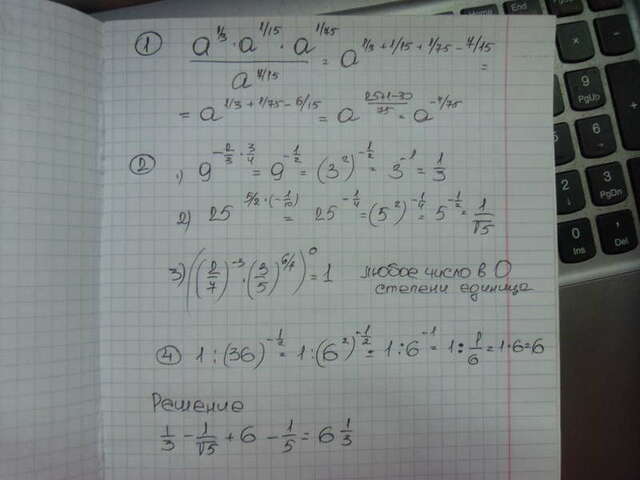 ① (a^1/3 · a^1/15 · a^1/75) / a^7/15 = a^1/3 + 1/15 + 1/75 - 7/15 =
= a^1/3 + 1/75 - 6/15 = a^(25+1-30)/75 = a^-4/75
② 1) 9^-2/3 · 3/4 = 9^-1/2 = (3^2)^-1/2 = 3^-1 = 1/3
2) 25^5/2 · (-1/10) = 25^-1/4 = (5^2)^-1/4 = 5^-1/2 = 1/√5
3) ((2/7)^-3 · (3/5)^6/7)^0 = 1 любое число в 0
степени единица
④ 1 : (36)^-1/2 = 1 : (6^2)^-1/2 = 1 : 6^-1 = 1 : 1/6 = 1·6=6
Решение
1/3 - 1/√5 + 6 - 1/5 = 6 1/3
Home
End
PgUp
9
PgUp
6
3
PgDn
0
Ins
,
Del